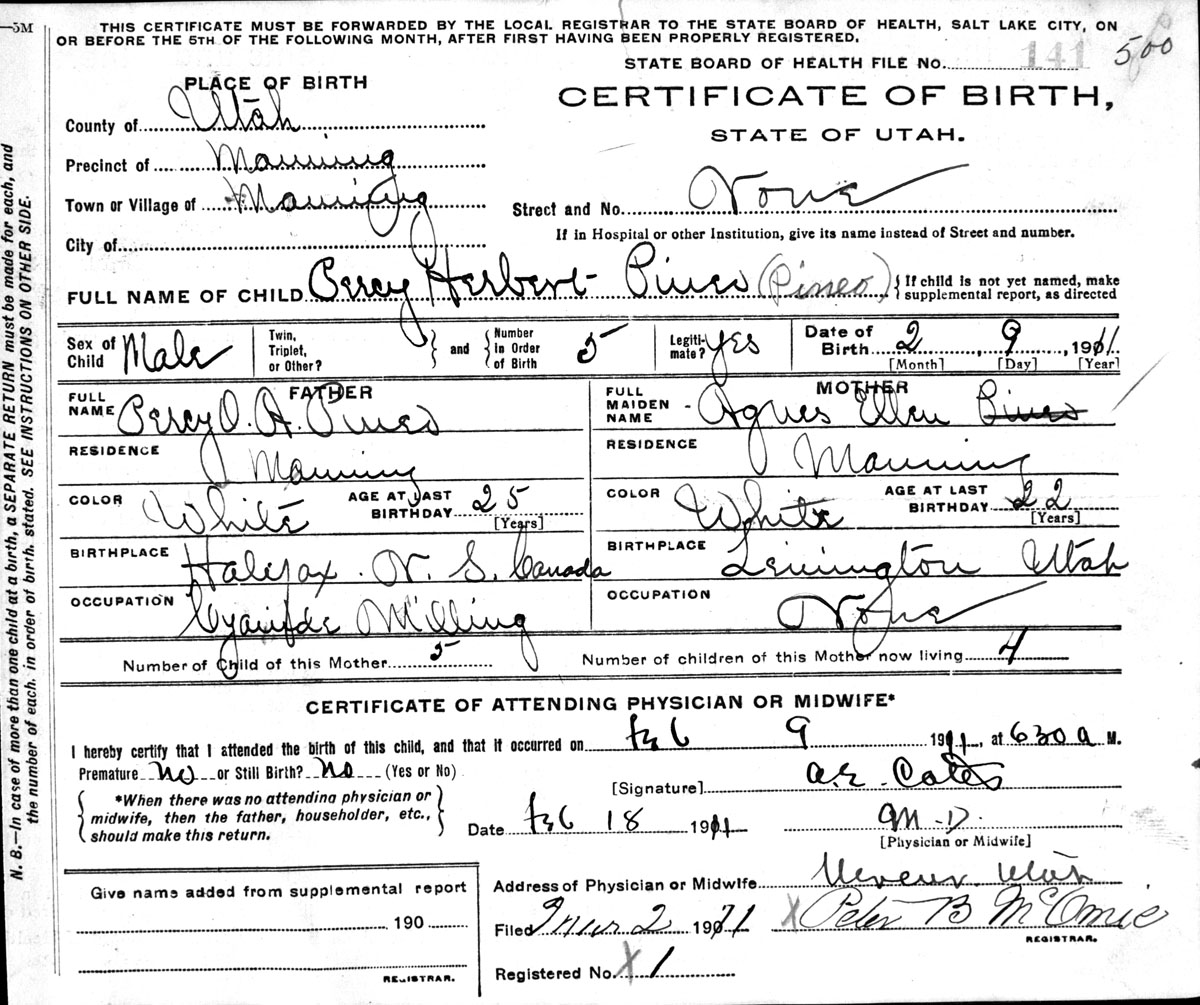 —5M
THIS CERTIFICATE MUST BE FORWARDED BY THE LOCAL REGISTRAR TO THE STATE BOARD OF HEALTH, SALT LAKE CITY, ON
OR BEFORE THE 5TH OF THE FOLLOWING MONTH, AFTER FIRST HAVING BEEN PROPERLY REGISTERED.
STATE BOARD OF HEALTH FILE No. 141 500
PLACE OF BIRTH
CERTIFICATE OF BIRTH,
STATE OF UTAH.
County of Utah
Precinct of Manning
Town or Village of Manning
Street and No. None
City of
If in Hospital or other Institution, give its name instead of Street and number.
FULL NAME OF CHILD Percy Herbert Pineo (Pineo) { If child is not yet named, make
supplemental report, as directed
Sex of Child Male Twin, Triplet, or Other? } and { Number in Order of Birth 5 Legiti-mate? Yes Date of Birth 2, 9, 1911
[Month] [Day] [Year]
FATHER MOTHER
FULL NAME Percy O. A. Pineo FULL MAIDEN NAME Agnes Ellen Pineo
RESIDENCE Manning RESIDENCE Manning
COLOR White AGE AT LAST BIRTHDAY 25 [Years] COLOR White AGE AT LAST BIRTHDAY 22 [Years]
BIRTHPLACE Halifax N. S. Canada BIRTHPLACE Lemington Utah
OCCUPATION Cyanide Milling OCCUPATION None
Number of Child of this Mother 5 Number of children of this Mother now living 4
CERTIFICATE OF ATTENDING PHYSICIAN OR MIDWIFE*
I hereby certify that I attended the birth of this child, and that it occurred on Feb 9 1911, at 630 a M.
Premature No or Still Birth? No (Yes or No)
[Signature] A.E. Cates
{ *When there was no attending physician or
midwife, then the father, householder, etc.,
should make this return. }
Date Feb 18 1911 M.D.
[Physician or Midwife]
Give name added from supplemental report
190
REGISTRAR.
Address of Physician or Midwife Mercur Utah
Filed Mar 2 1911 X Peter B McOmie
REGISTRAR.
Registered No. X 1
N. B.—In case of more than one child at a birth, a SEPARATE RETURN must be made for each, and
the number of each, in order of birth, stated. SEE INSTRUCTIONS ON OTHER SIDE.